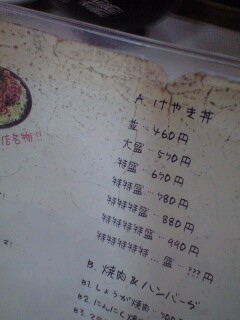 店名物!!
A. けやき丼
並 … 460円
大盛 … 570円
特盛 … 670円
特特盛 … 780円
特特特盛 … 880円
特特特特盛 … 990円
特特特特特… 盛 … ???円
B. 焼肉 & ハンバーグ
B1. しょうが焼肉
B2. にんにく焼